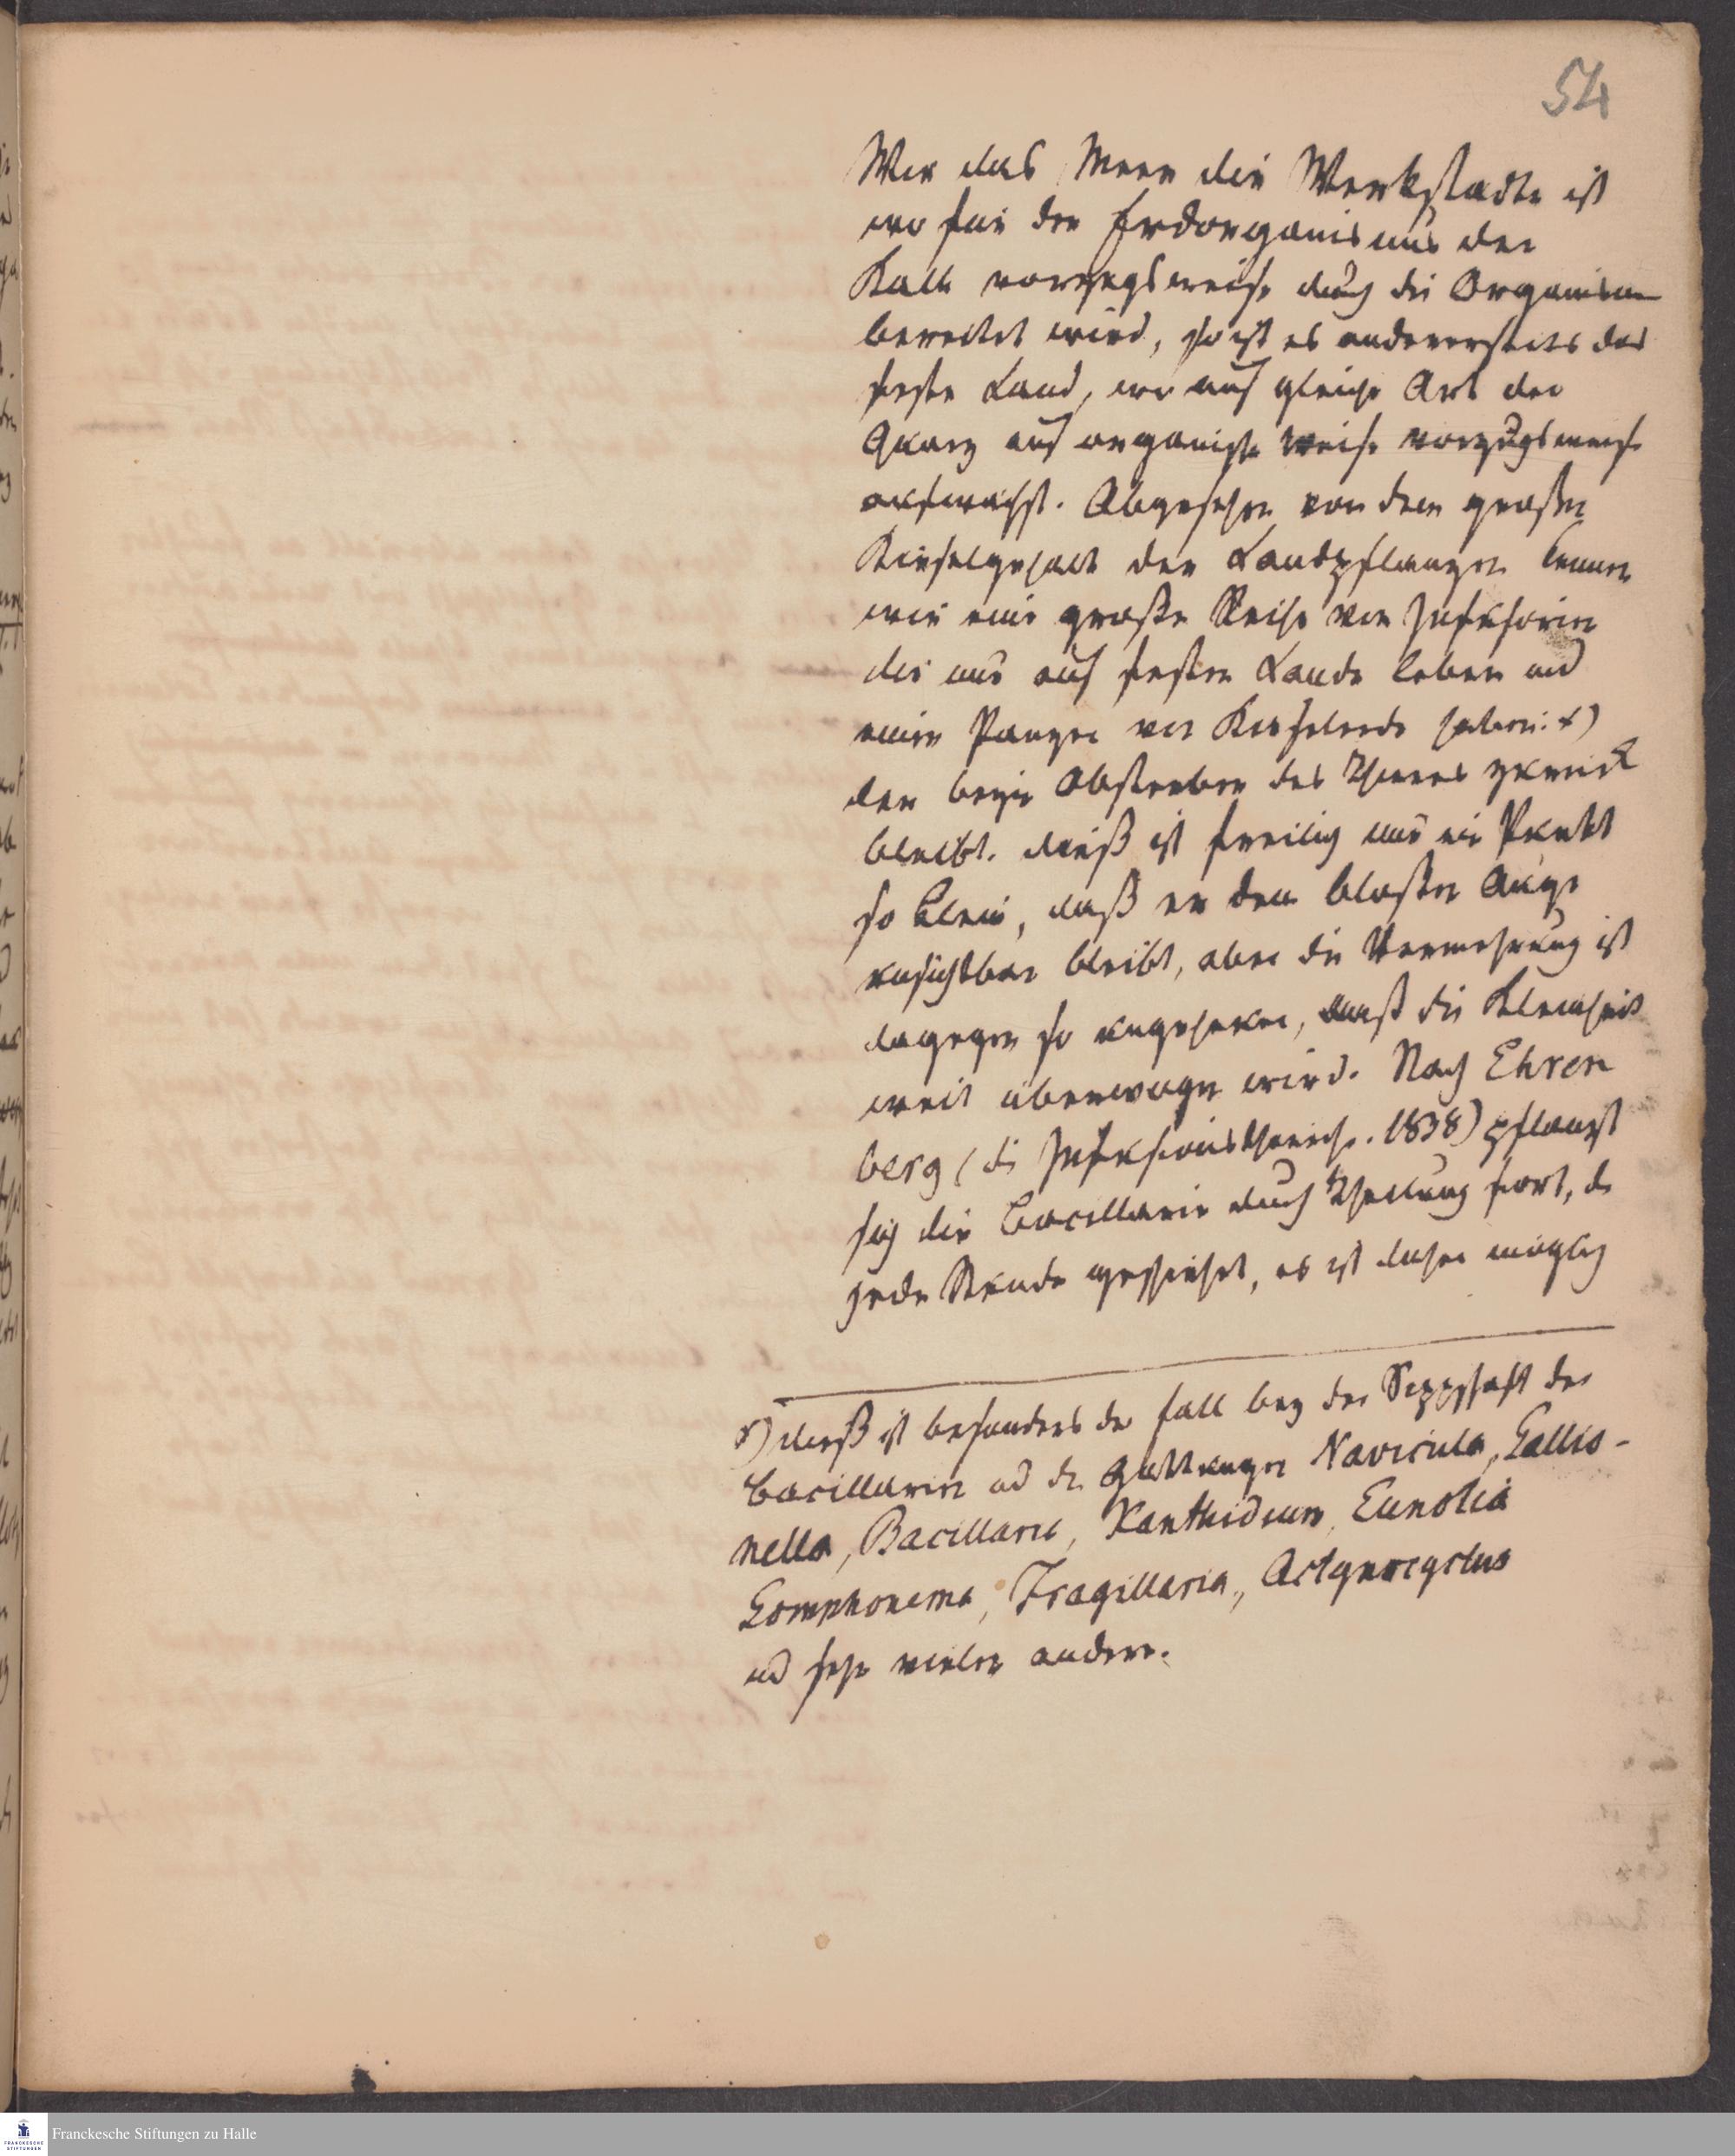 54
Wie das Meer die Werkstädte ist
wo für den Erdorganismus der
Kalk vorzugsweise durch die Organismen
bereitet wird, so ist es andererseits das
feste Land, wo auf gleiche Art der
Quarz auf organische Weise vorzugsweise
anwächst. Abgesehen von dem großen
Kieselgehalt der Landpflanzen kennen
wir eine große Reihe von Infusorien
die nur auf festem Lande leben und
einen Panzer von Kieselerde haben: x)
der beym Absterben des Thieres zurück
bleibt. dieß ist freilich nur ein Punkt
so klein, daß er dem bloßen Auge
unsichtbar bleibt, aber die Vermehrung ist
dagegen so ungeheuer, daß die Kleinheit
weit überwogen wird. Nach Ehren
berg (die Infusionsthierch. 1838) pflanzt
sich die Bacillarie durch Theilung fort, die
jede Stunde geschieht, es ist daher möglich
x) dieß ist besonders der Fall bey der Sippschaft der
Bacillarien und den Gattungen Navicula, Gallio-
nella, Bacillaria, Xanthidium, Eunotia
Gomphonema, Fragillaria, Actynocyclus
und sehr vielen andern.
Franckesche Stiftungen zu Halle
FRANCKESCHE
STIFTUNGEN